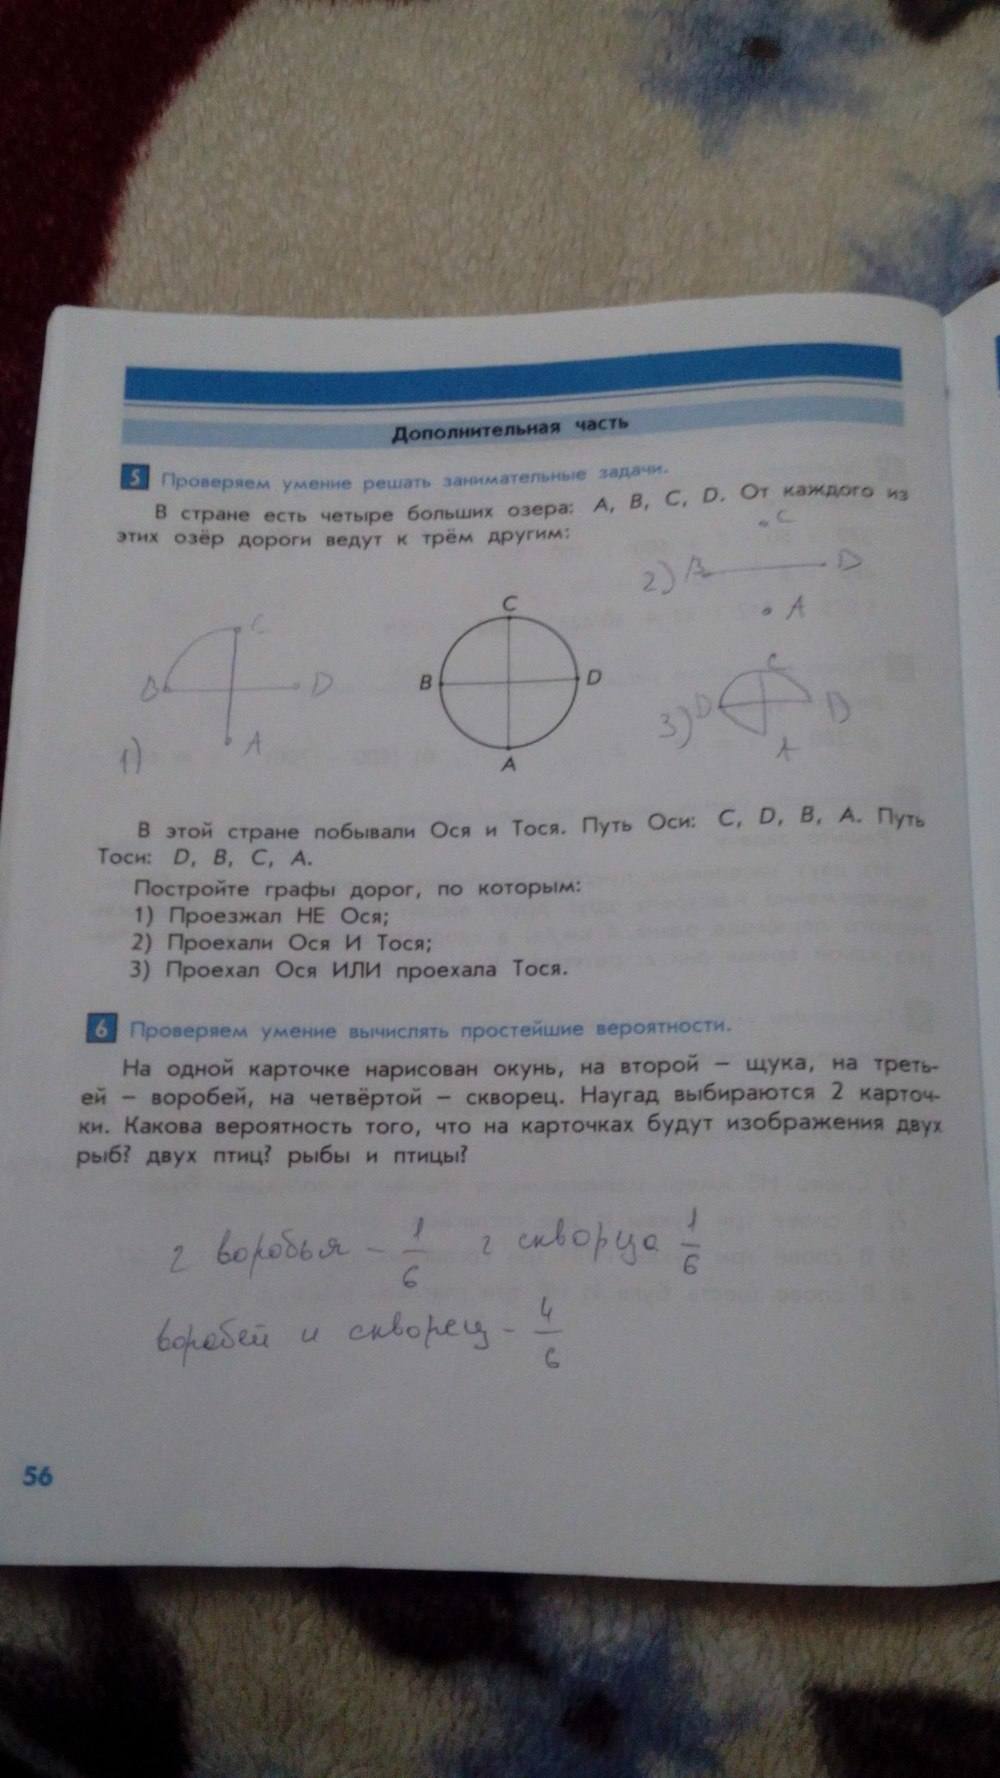 Дополнительная часть
5 Проверяем умение решать занимательные задачи.
В стране есть четыре больших озера: A, B, C, D. От каждого из
этих озёр дороги ведут к трём другим:
C
2) B D
A
C
B D
A
1)
C
B D
A
C
3) D D
A
В этой стране побывали Ося и Тося. Путь Оси: C, D, B, A. Путь
Тоси: D, B, C, A.
Постройте графы дорог, по которым:
1) Проезжал НЕ Ося;
2) Проехали Ося И Тося;
3) Проехал Ося ИЛИ проехала Тося.
6 Проверяем умение вычислять простейшие вероятности.
На одной карточке нарисован окунь, на второй – щука, на треть-
ей – воробей, на четвёртой – скворец. Наугад выбираются 2 карточ-
ки. Какова вероятность того, что на карточках будут изображения двух
рыб? двух птиц? рыбы и птицы?
2 воробья – 1/6 2 скворца 1/6
воробей и скворец - 4/6
56